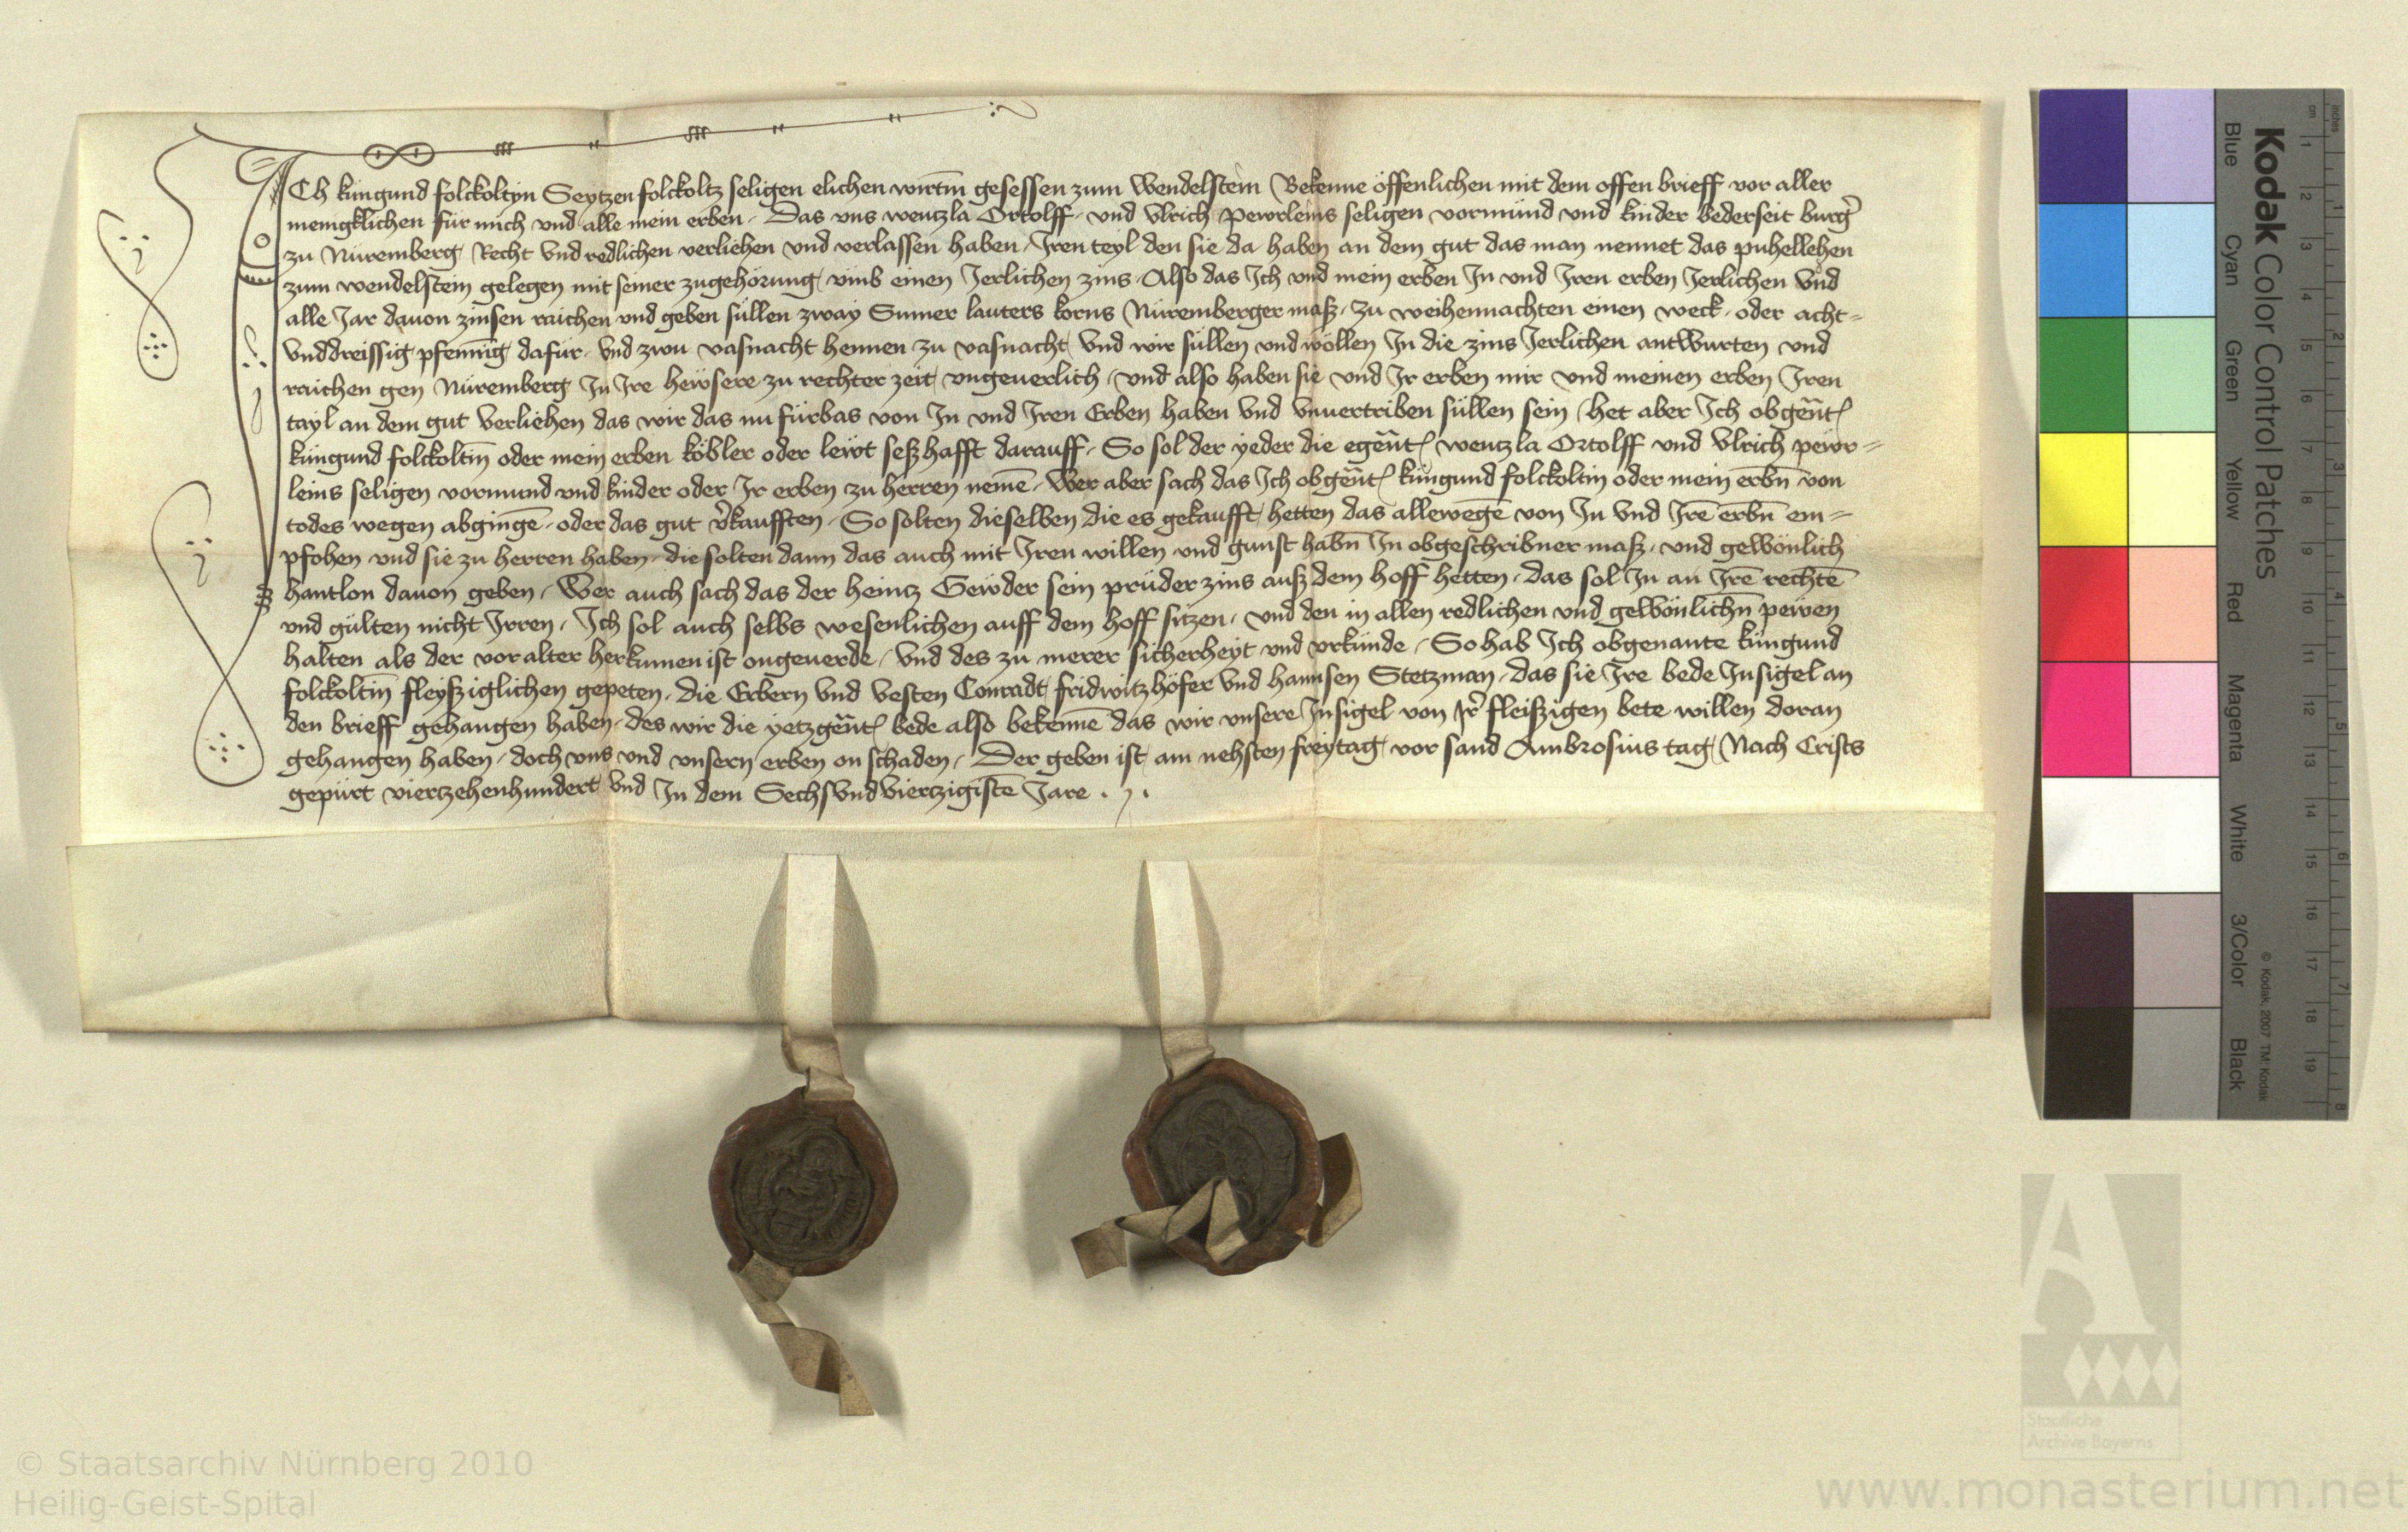 ICh kungund folckoltyn Seytzen folckoltz seligen elichen wirtin̄ gesessen zum Wendelstein Bekenne öffenlichen mit dem offen brieff vor aller
menigklichen für mich vnd alle mein erben Das vns wenczla Ortolff vnd vlrich pewrleins seligen vormund vnd kinder bederseit burg̉
zu Nuremberg Recht vnd redlichen verliehen vnd verlassen haben Iren teyl den sie da haben an dem gut das man nennet das puhellehen
zum wendelstein gelegen mit seiner zugehörung vmb einen Jerlichen zins Also das Ich vnd mein erben In vnd Iren erben Jerlichen vnd
alle Jar dauon zinsen raichen vnd geben süllen zway Sumer lauters korns Nüremberger maß zu weihennachten einen weck oder acht=
vnddreissig pfenn̄ig dafür vnd zwu vasnacht hennen zu vasnacht vnd wir süllen vnd wöllen In die zins Jerlichen antwurten vnd
raichen gen Nüremberg In Ire hewsere zu rechter zeit vngeuerlich vnd also haben sie vnd Ir erben mir vnd meinen erben Iren
tayl an dem gut verliehen das wir das nu fürbas von In vnd Iren Erben haben vnd vnuertriben süllen sein het aber Ich obgen̄t
kungund folckoltin̄ oder mein erben köbler oder lewt seßhafft darauff So sol der yeder die egen̄t wenczla Ortolff vnd vlrich pewr=
leins seligen vormund vnd kinder oder Ir erben zu herren nemē Wer aber sach das Ich obgen̄t kungund folckoltin oder mein erbn̄ von
todes wegen abgingē oder das gut v̉kaufften So solten dieselben die es gekaufft hetten das allewegē von In vnd Irē erbn̄ em=
pfohen vnd sie zu herren haben die solten dann das auch mit Iren willen vnd gunst habn̄ In obgeschribner maß vnd gewönlich
hantlon dauon geben Wer auch sach das der heintz Gewder sein prüder zins auß dem hoff hetten das sol In an Irē rechtē
vnd gülten nicht Irren Ich sol auch selbs wesenlichen auff dem hoff sitzen vnd den in allen redlichen vnd gewönlichn̄ pewen
halten als der vor alter herkumen ist ongeuerde vnd des zu merer sicherheyt vnd vrkunde So hab Ich obgenante kungund
folckoltin̄ fleyßiglichen gepeten die Erbern vnd vesten Conradt fridwitzhöfer vnd hannsen Stetzman das sie Ire bede Insigel an
den brieff gehangen haben des wir die yetzgen̄t bede also bekennē das wir vnsere Insigel von Ir̉ fleißigen bete willen doran
gehangen haben doch vns vnd vnsern erben on schaden Der geben ist am nehsten freytag vor sand Ambrosius tag Nach Crists
gepürt vierzehenhundert vnd In dem Sechsvndvierczigistē Jare
Kodak Color Control Patches
Blue Cyan Green Yellow Red Magenta White 3/Color Black
© Kodak, 2007 TM: Kodak
cm 1 2 3 4 5 6 7 8 9 10 11 12 13 14 15 16 17 18 19
inches 1 2 3 4 5 6 7 8
Staatliche
Archive Bayerns
© Staatsarchiv Nürnberg 2010
Heilig-Geist-Spital
www.monasterium.net